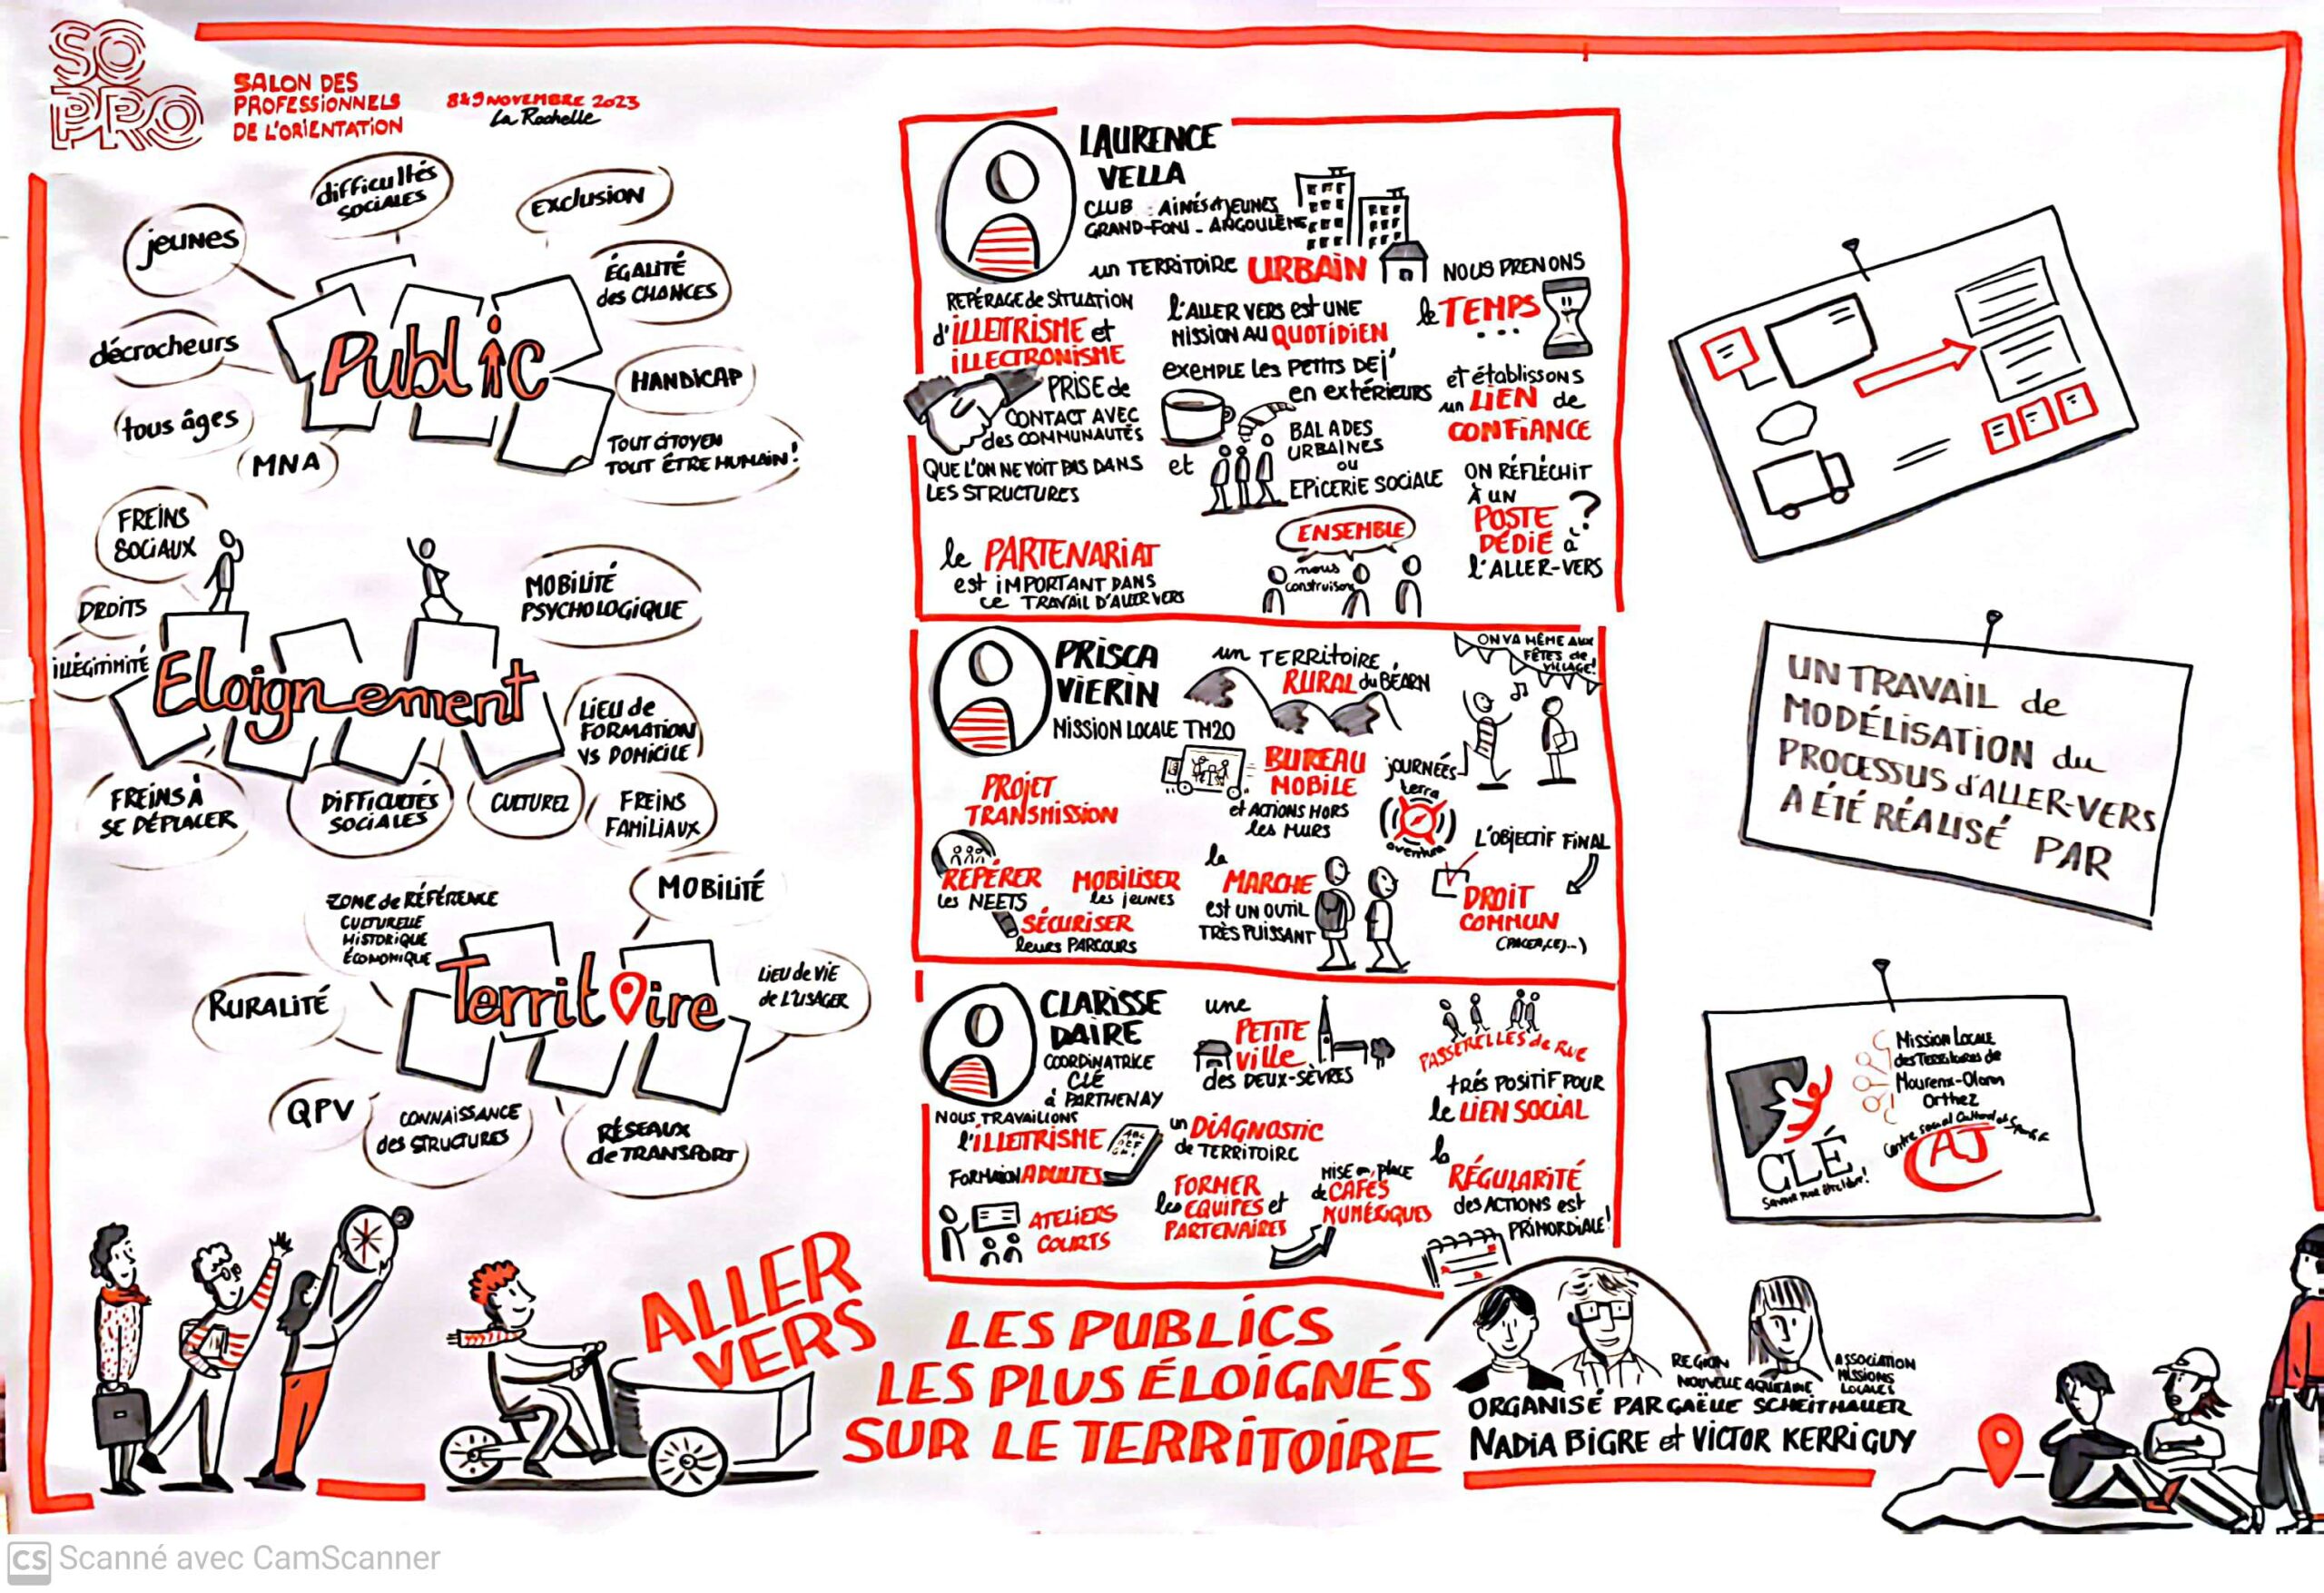 SO
PRO
SALON DES
PROFESSIONNELS
DE L'ORIENTATION
8&9 NOVEMBRE 2023
La Rochelle
difficultés
SOCIALES
EXCLUSION
jeunes
ÉGALITÉ
des CHANCES
décrocheurs
Public
HANDICAP
tous âges
MNA
TOUT CITOYEN
TOUT ÊTRE HUMAIN!
FREINS
SOCIAUX
DROITS
MOBILITÉ
PSYCHOLOGIQUE
ILLÉGITIMITÉ
Eloignement
LIEU de
FORMATION
VS DOMICILE
FREINS À
SE DÉPLACER
DIFFICULTÉS
SOCIALES
CULTUREL
FREINS
FAMILIAUX
MOBILITÉ
ZONE de RÉFÉRENCE
CULTURELLE
HISTORIQUE
ÉCONOMIQUE
Territoire
LIEU de VIE
de L'USAGER
RURALITÉ
QPV
CONNAISSANCE
des STRUCTURES
RÉSEAUX
de TRANSPORT
LAURENCE
VELLA
CLUB AINÉS JEUNES
GRAND-FONT - ANGOULÊME
un TERRITOIRE URBAIN
REPÉRAGE de SITUATION
d'ILLETRISME et
ILLECTRONISME
PRISE de
CONTACT AVEC
des COMMUNAUTÉS
QUE L'ON NE VOIT PAS DANS
LES STRUCTURES
l'ALLER VERS est UNE
MISSION AU QUOTIDIEN
EXEMPLE LES PETITS DEJ'
en extérieurs
et
BALADES
URBAINES
ou
EPICERIE SOCIALE
NOUS PRENONS
le TEMPS
...
et établissons
un LIEN de
CONFIANCE
ON RÉFLÉCHIT
À UN
POSTE ?
DÉDIÉ à
l'ALLER-VERS
le PARTENARIAT
est IMPORTANT DANS
ce TRAVAIL D'ALLER VERS
ENSEMBLE
nous
construisons
PRISCA
VIERIN
MISSION LOCALE TM20
un TERRITOIRE
RURAL du BÉARN
ON VA MÊME AUX
FÊTES de
VILLAGE!
PROJET
TRANSMISSION
BUREAU
MOBILE
et ACTIONS HORS
les MURS
JOURNÉES
terra
aventura
REPÉRER
les NEETS
MOBILISER
les jeunes
SÉCURISER
leurs PARCOURS
la
MARCHE
est UN OUTIL
TRÈS PUISSANT
L'OBJECTIF FINAL
DROIT
COMMUN
(PACEA, CEJ...)
CLARISSE
DAIRE
COORDINATRICE
CLÉ
à PARTHENAY
une
PETITE
ville
des DEUX-SÈVRES
PASSERELLES de RUE
très POSITIF POUR
le LIEN SOCIAL
NOUS TRAVAILLONS
l'ILLETRISME
ABC
FORMATION ADULTES
ATELIERS
COURTS
un DIAGNOSTIC
de TERRITOIRE
FORMER
les ÉQUIPES et
PARTENAIRES
MISE en PLACE
de CAFÉS
NUMÉRIQUES
la
RÉGULARITÉ
des ACTIONS est
PRIMORDIALE!
UN TRAVAIL de
MODÉLISATION du
PROCESSUS d'ALLER-VERS
A ÉTÉ RÉALISÉ PAR
CLÉ
Savoir pour être libre!
Mission Locale
des Territoires de
Mourenx-Oloron
Orthez
Centre social Culturel et Sportif
AJ
ALLER
VERS
LES PUBLICS
LES PLUS ÉLOIGNÉS
SUR LE TERRITOIRE
REGION
NOUVELLE AQUITAINE
ASSOCIATION
MISSIONS
LOCALES
ORGANISÉ PAR GAËLLE SCHEITHAUER
NADIA BIGRE et VICTOR KERRIGUY
CS Scanné avec CamScanner